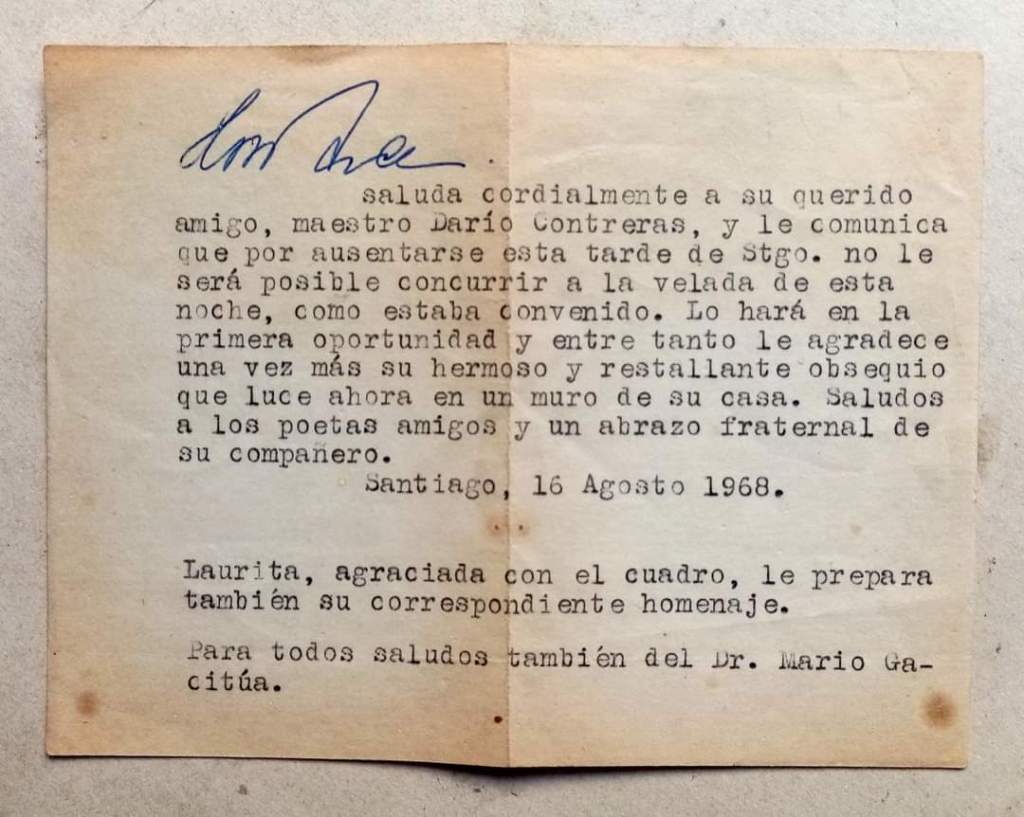 saluda cordialmente a su querido
amigo, maestro Darío Contreras, y le comunica
que por ausentarse esta tarde de Stgo. no le
será posible concurrir a la velada de esta
noche, como estaba convenido. Lo hará en la
primera oportunidad y entre tanto le agradece
una vez más su hermoso y restallante obsequio
que luce ahora en un muro de su casa. Saludos
a los poetas amigos y un abrazo fraternal de
su compañero.
Santiago, 16 Agosto 1968.
Laurita, agraciada con el cuadro, le prepara
también su correspondiente homenaje.
Para todos saludos también del Dr. Mario Ga-
citúa.